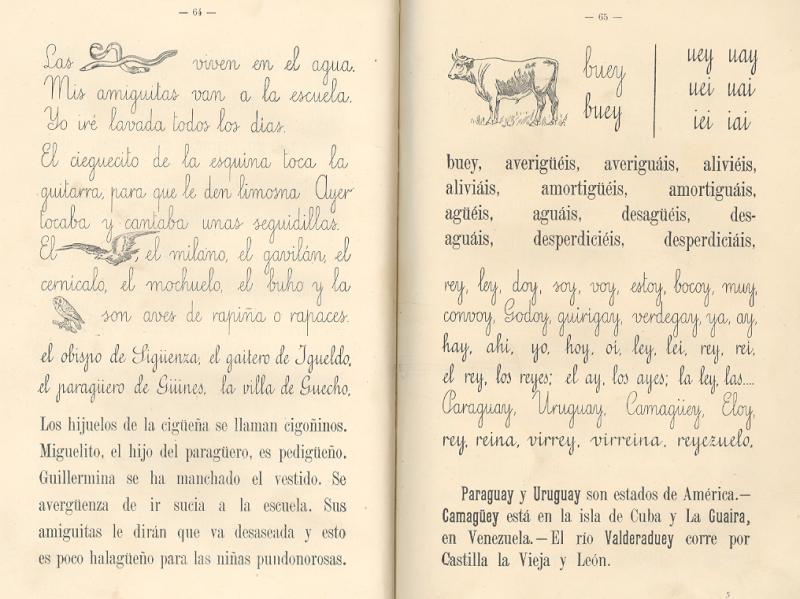 — 64 —
Las viven en el agua.
Mis amiguitas van a la escuela.
Yo iré lavada todos los dias.
El cieguecito de la esquina toca la
guitarra, para que le den limosna Ayer
tocaba y cantaba unas seguidillas.
El , el milano, el gavilán, el
cernícalo, el mochuelo, el buho y la
son aves de rapiña o rapaces.
el obispo de Sigüenza; el gaitero de Igueldo,
el paragüero de Güines, la villa de Guecho,
Los hijuelos de la cigüeña se llaman cigoñinos.
Miguelito, el hijo del paragüero, es pedigüeño.
Guillermina se ha manchado el vestido. Se
avergüenza de ir sucia a la escuela. Sus
amiguitas le dirán que va desaseada y esto
es poco halagüeño para las niñas pundonorosas.
— 65 —
buey
buey
uey uay
uei uai
iei iai
buey, averigüéis, averiguáis, aliviéis,
aliviáis, amortigüéis, amortiguáis,
agüéis, aguáis, desagüéis, des-
aguáis, desperdiciéis, desperdiciáis,
rey, ley, doy, soy, voy, estoy, bocoy, muy,
convoy, Godoy, guirigay, verdegay, ya, ay,
hay, ahi, yo, hoy, oi, ley, lei, rey, rei,
el rey, los reyes; el ay, los ayes; la ley, las....
Paraguay, Uruguay, Camagüey, Eloy,
rey, reina, virrey, virreina, reyezuelo,
Paraguay y Uruguay son estados de América.—
Camagüey está en la isla de Cuba y La Guaira,
en Venezuela.—El río Valderaduey corre por
Castilla la Vieja y León.
5